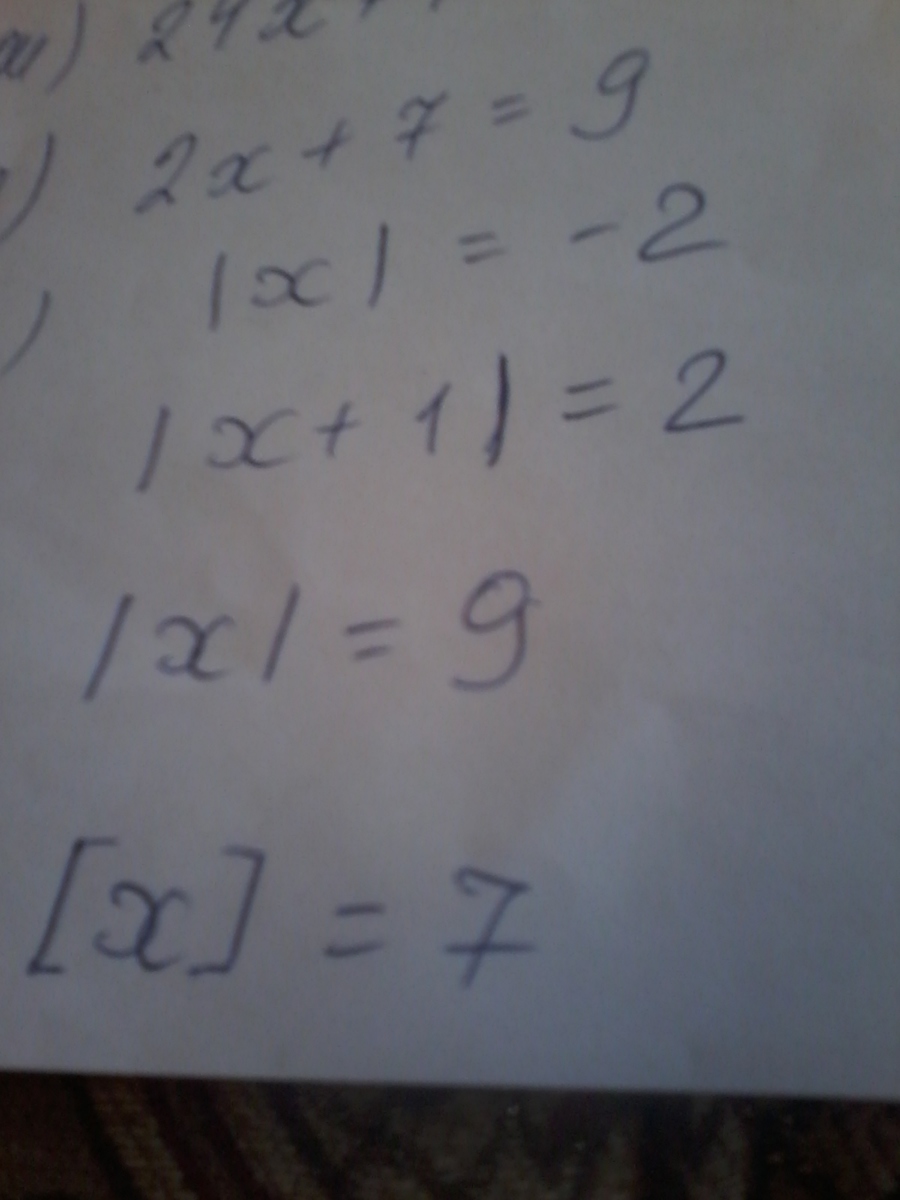 ) 24x +
2x + 7 = 9
) |x| = -2
) |x + 1| = 2
|x| = 9
[x] = 7